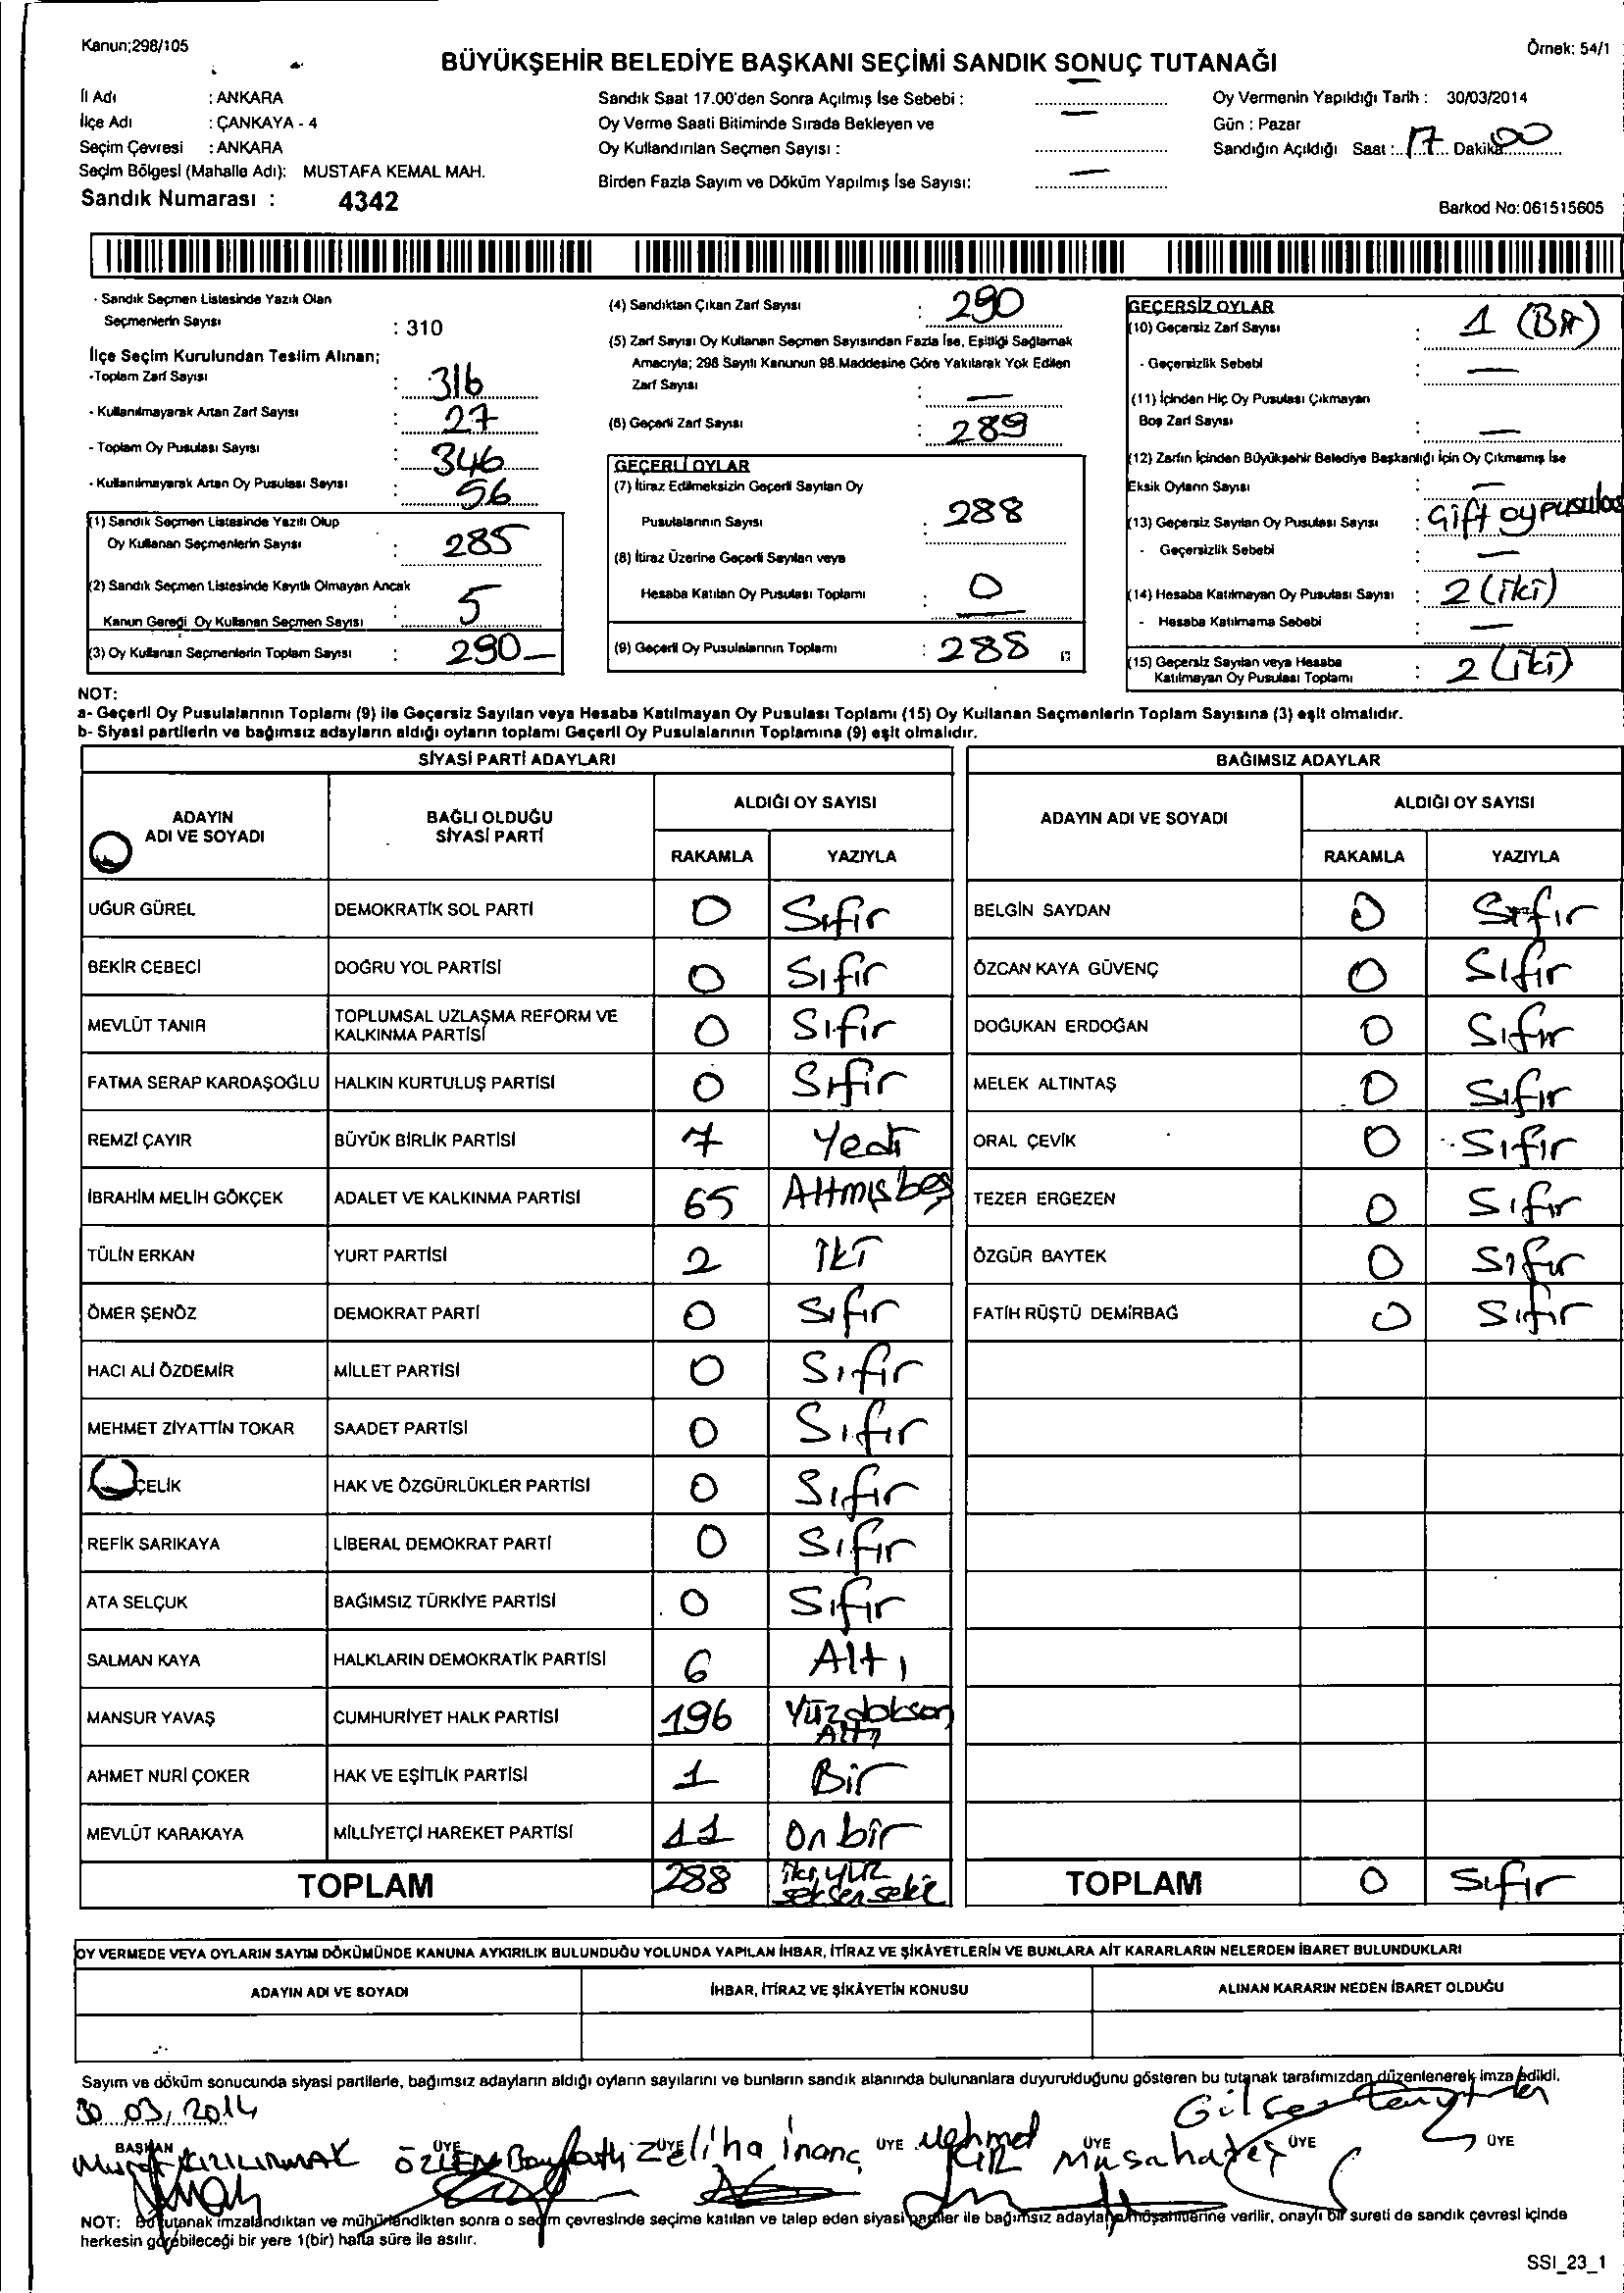 Kanun;298/105
Örnek: 54/1
BÜYÜKŞEHİR BELEDİYE BAŞKANI SEÇİMİ SANDIK SONUÇ TUTANAĞI
İl Adı : ANKARA
İlçe Adı : ÇANKAYA - 4
Seçim Çevresi : ANKARA
Seçim Bölgesi (Mahalle Adı): MUSTAFA KEMAL MAH.
Sandık Numarası : 4342
Sandık Saat 17.00'den Sonra Açılmış İse Sebebi : —
Oy Verme Saati Bitiminde Sırada Bekleyen ve
Oy Kullandırılan Seçmen Sayısı : —
Birden Fazla Sayım ve Döküm Yapılmış İse Sayısı: —
Oy Vermenin Yapıldığı Tarih : 30/03/2014
Gün : Pazar
Sandığın Açıldığı Saat : 17 Dakika 00
Barkod No: 061515605
- Sandık Seçmen Listesinde Yazılı Olan
Seçmenlerin Sayısı : 310
İlçe Seçim Kurulundan Teslim Alınan;
-Toplam Zarf Sayısı : 316
- Kullanılmayarak Artan Zarf Sayısı : 27
- Toplam Oy Pusulası Sayısı : 346
- Kullanılmayarak Artan Oy Pusulası Sayısı : 56
(1) Sandık Seçmen Listesinde Yazılı Olup
Oy Kullanan Seçmenlerin Sayısı : 285
(2) Sandık Seçmen Listesinde Kayıtlı Olmayan Ancak
Kanun Gereği Oy Kullanan Seçmen Sayısı : 5
(3) Oy Kullanan Seçmenlerin Toplam Sayısı : 290 —
(4) Sandıktan Çıkan Zarf Sayısı : 290
(5) Zarf Sayısı Oy Kullanan Seçmen Sayısından Fazla İse, Eşitliği Sağlamak
Amacıyla; 298 Sayılı Kanunun 98.Maddesine Göre Yakılarak Yok Edilen
Zarf Sayısı : —
(6) Geçerli Zarf Sayısı : 289
GEÇERLİ OYLAR
(7) İtiraz Edilmeksizin Geçerli Sayılan Oy
Pusulalarının Sayısı : 288
(8) İtiraz Üzerine Geçerli Sayılan veya
Hesaba Katılan Oy Pusulası Toplamı : 0
(9) Geçerli Oy Pusulalarının Toplamı : 288
GEÇERSİZ OYLAR
(10) Geçersiz Zarf Sayısı : 1 (Bir)
- Geçersizlik Sebebi : —
(11) İçinden Hiç Oy Pusulası Çıkmayan
Boş Zarf Sayısı : —
(12) Zarfın İçinden Büyükşehir Belediye Başkanlığı İçin Oy Çıkmamış İse
Eksik Oyların Sayısı : —
(13) Geçersiz Sayılan Oy Pusulası Sayısı : Çift oy pusulası
- Geçersizlik Sebebi : —
(14) Hesaba Katılmayan Oy Pusulası Sayısı : 2 (iki)
- Hesaba Katılmama Sebebi : —
(15) Geçersiz Sayılan veya Hesaba
Katılmayan Oy Pusulası Toplamı : 2 (iki)
NOT:
a- Geçerli Oy Pusulalarının Toplamı (9) ile Geçersiz Sayılan veya Hesaba Katılmayan Oy Pusulası Toplamı (15) Oy Kullanan Seçmenlerin Toplam Sayısına (3) eşit olmalıdır.
b- Siyasi partilerin ve bağımsız adayların aldığı oyların toplamı Geçerli Oy Pusulalarının Toplamına (9) eşit olmalıdır.
SİYASİ PARTİ ADAYLARI BAĞIMSIZ ADAYLAR
ADAYIN ADI VE SOYADI BAĞLI OLDUĞU SİYASİ PARTİ ALDIĞI OY SAYISI ADAYIN ADI VE SOYADI ALDIĞI OY SAYISI
RAKAMLA YAZIYLA RAKAMLA YAZIYLA
UĞUR GÜREL DEMOKRATİK SOL PARTİ 0 Sıfır BELGİN SAYDAN 0 Sıfır
BEKİR CEBECİ DOĞRU YOL PARTİSİ 0 Sıfır ÖZCAN KAYA GÜVENÇ 0 Sıfır
MEVLÜT TANIR TOPLUMSAL UZLAŞMA REFORM VE KALKINMA PARTİSİ 0 Sıfır DOĞUKAN ERDOĞAN 0 Sıfır
FATMA SERAP KARDAŞOĞLU HALKIN KURTULUŞ PARTİSİ 0 Sıfır MELEK ALTINTAŞ 0 Sıfır
REMZİ ÇAYIR BÜYÜK BİRLİK PARTİSİ 7 Yedi ORAL ÇEVİK 0 Sıfır
İBRAHİM MELİH GÖKÇEK ADALET VE KALKINMA PARTİSİ 65 Altmışbeş TEZER ERGEZEN 0 Sıfır
TÜLİN ERKAN YURT PARTİSİ 2 İki ÖZGÜR BAYTEK 0 Sıfır
ÖMER ŞENÖZ DEMOKRAT PARTİ 0 Sıfır FATİH RÜŞTÜ DEMİRBAĞ 0 Sıfır
HACI ALİ ÖZDEMİR MİLLET PARTİSİ 0 Sıfır
MEHMET ZİYATTİN TOKAR SAADET PARTİSİ 0 Sıfır
ÇELİK HAK VE ÖZGÜRLÜKLER PARTİSİ 0 Sıfır
REFİK SARIKAYA LİBERAL DEMOKRAT PARTİ 0 Sıfır
ATA SELÇUK BAĞIMSIZ TÜRKİYE PARTİSİ 0 Sıfır
SALMAN KAYA HALKLARIN DEMOKRATİK PARTİSİ 6 Altı
MANSUR YAVAŞ CUMHURİYET HALK PARTİSİ 196 Yüzdoksan Altı
AHMET NURİ ÇOKER HAK VE EŞİTLİK PARTİSİ 1 Bir
MEVLÜT KARAKAYA MİLLİYETÇİ HAREKET PARTİSİ 11 Onbir
TOPLAM 288 ikiyüz seksensekiz TOPLAM 0 Sıfır
OY VERMEDE VEYA OYLARIN SAYIM DÖKÜMÜNDE KANUNA AYKIRILIK BULUNDUĞU YOLUNDA YAPILAN İHBAR, İTİRAZ VE ŞİKÂYETLERİN VE BUNLARA AİT KARARLARIN NELERDEN İBARET BULUNDUKLARI
ADAYIN ADI VE SOYADI İHBAR, İTİRAZ VE ŞİKÂYETİN KONUSU ALINAN KARARIN NEDEN İBARET OLDUĞU
Sayım ve döküm sonucunda siyasi partilerle, bağımsız adayların aldığı oyların sayılarını ve bunların sandık alanında bulunanlara duyurulduğunu gösteren bu tutanak tarafımızdan düzenlenerek imza edildi.
30.03.2014
BAŞKAN ÜYE ÜYE ÜYE ÜYE ÜYE ÜYE
KIZILIRMAK ÖZLEM Zeliha İnanç Mehmet
NOT: Bu tutanak imzalandıktan ve mühürlendikten sonra o seçim çevresinde seçime katılan ve talep eden siyasi partiler ile bağımsız adaylar müşahitlerine verilir, onaylı bir sureti de sandık çevresi içinde
herkesin görebileceği bir yere 1(bir) hafta süre ile asılır.
SSI_23_1